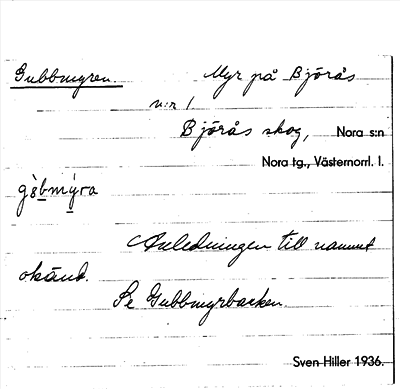 Gubbmyren. Myr på Björås
n:r 1
Björås skog, Nora s:n
Nora tg., Västernorrl. l.
gòbmýra
Anledningen till namnet
okänd.
Se Gubbmyrbacken.
Sven Hiller 1936.